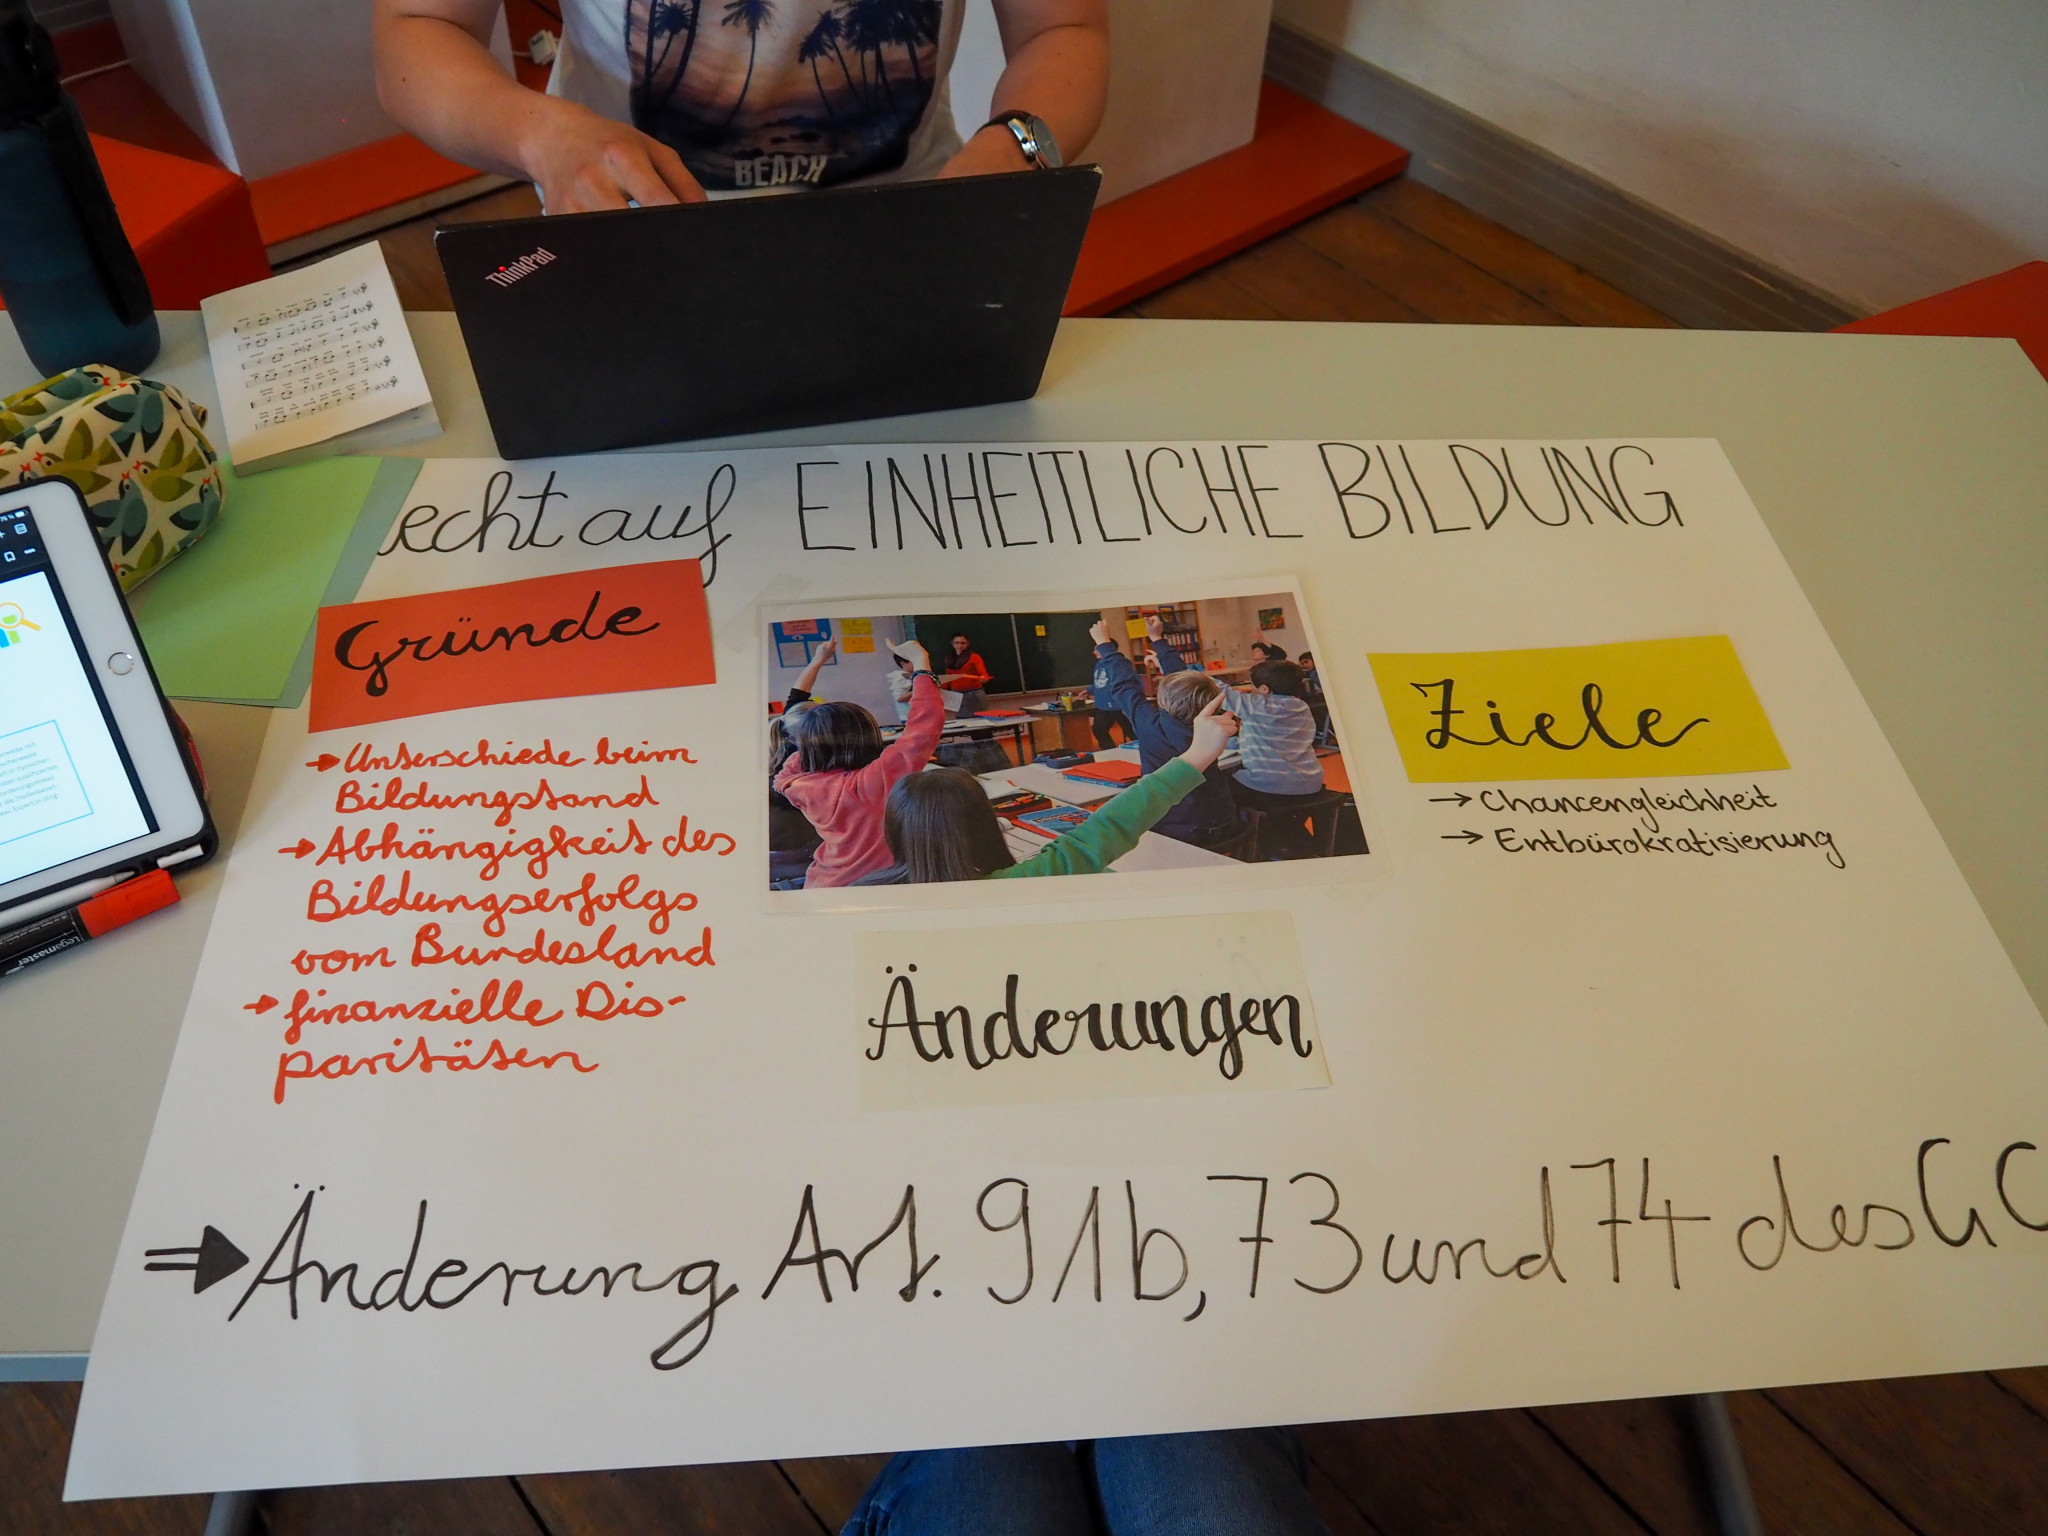 BEACH
ThinkPad
echt auf EINHEITLICHE BILDUNG
Gründe
→ Unterschiede beim
Bildungstand
→ Abhängigkeit des
Bildungserfolgs
vom Bundesland
→ finanzielle Dis-
paritäten
Ziele
→ Chancengleichheit
→ Entbürokratisierung
Änderungen
⇒ Änderung Art. 91b, 73 und 74 des GG
Legamaster